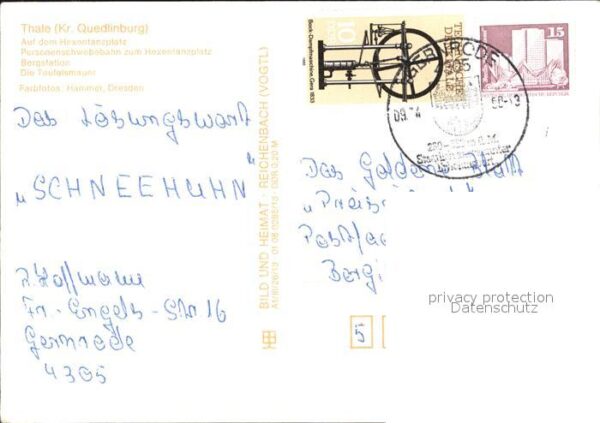 Thale (Kr. Quedlinburg)
Auf dem Hexentanzplatz
Personenschwebebahn zum Hexentanzplatz
Bergstation
Die Teufelsmauer
Farbfotos: Hammer, Dresden
Das Lösungswort
"SCHNEEHUHN"
Hoffmann
Fr.-Engels-Str. 16
Gernrode
4305
BILD UND HEIMAT · REICHENBACH (VOGTL)
DDR 0,20 M
Bock-Dampfmaschine, Gera 1833
10
DDR
15
GERNRODE
4305
Das Goldene Blatt
"Preis
Postfac
Bergi
5
privacy protection
Datenschutz